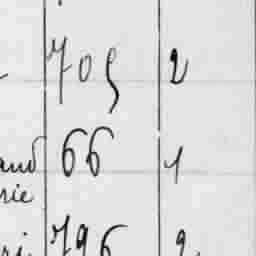 705 2
and 66 1
rie
796 2